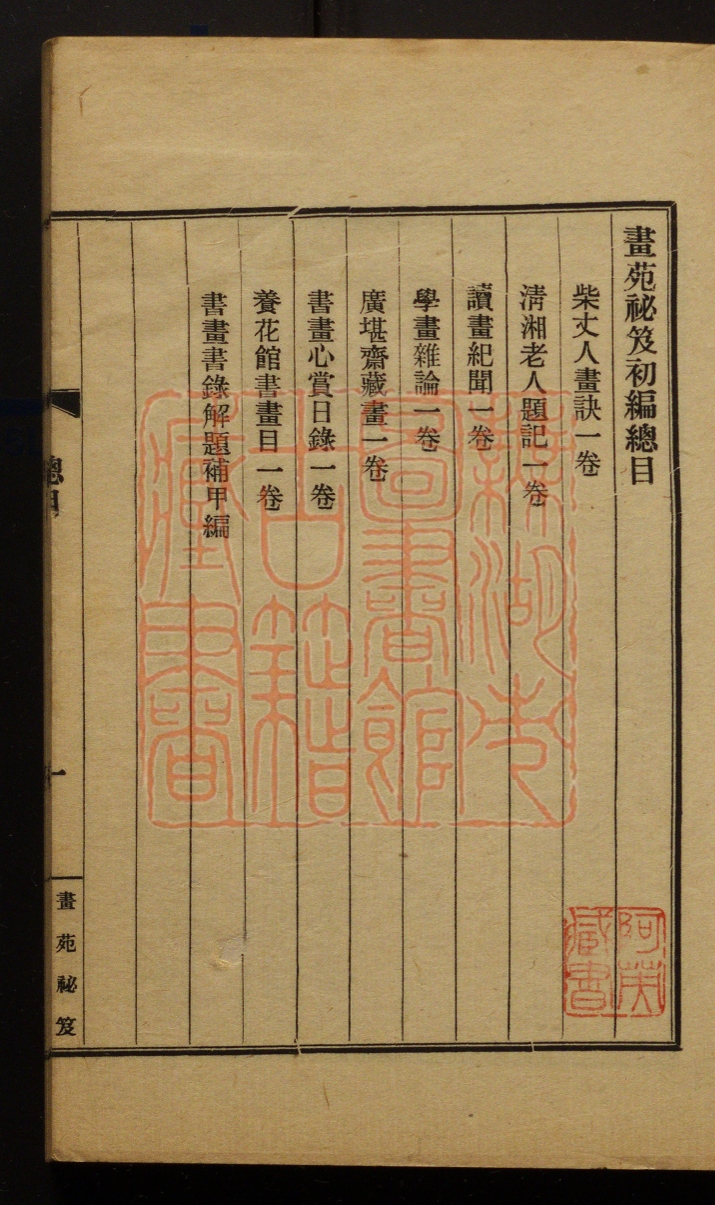 畫苑祕笈初編總目
柴丈人畫訣一卷
淸湘老人題記一卷
讀畫紀聞一卷
學畫雜論一卷
廣堪齋藏畫一卷
書畫心賞日錄一卷
養花館書畫目一卷
書畫書錄解題補甲編
總目
一
畫苑祕笈
蕪湖市
圖書館
古籍
藏書
阿英
藏書